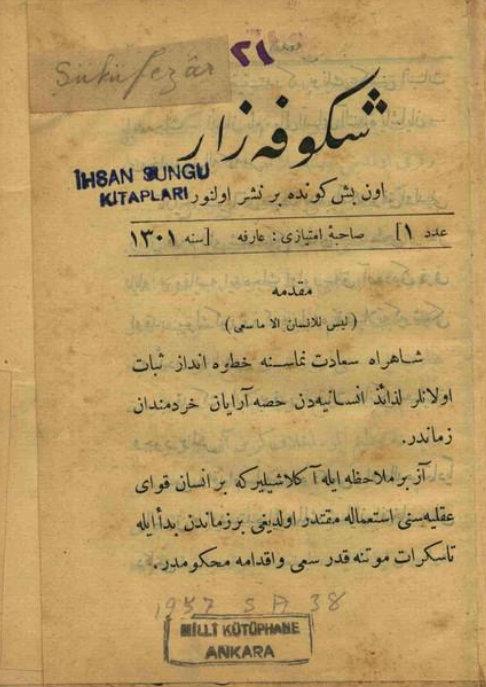 ٢١
Şüküfezâr
شكوفه زار
İHSAN SUNGU
KİTAPLARI
اون بش كونده بر نشر اولنور
عدد ١] صاحبۀ امتيازى : عارفه [سنه ١٣٠١
مقدمه
(ليس للانسان الا ماسعى)
شـاهراه سعادت نماسـنه خطوه انداز ثبات
اولانلر لذائذ انسـانيه‌دن حصه آرايان خردمندان
زماندر.
آز بر ملاحظه ايله آكلاشيليركه بر انسان قواى
عقليه‌سنى استعماله مقتدر اولديغى بر زماندن بدأ ايله
تاسكرات موتنه قدر سعى واقدامه محكومدر.
1957 S A 38
MİLLÎ KÜTÜPHANE
ANKARA